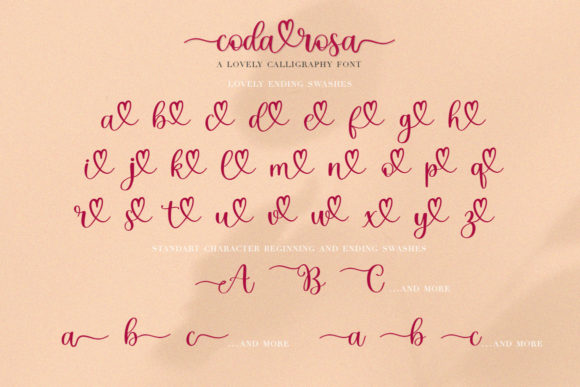 coda rosa
A LOVELY CALLIGRAPHY FONT
LOVELY ENDING SWASHES
a b c d e f g h
i j k l m n o p q
r s t u v w x y z
STANDART CHARACTER BEGINNING AND ENDING SWASHES
A B C ...AND MORE
a b c ...AND MORE a b c ...AND MORE